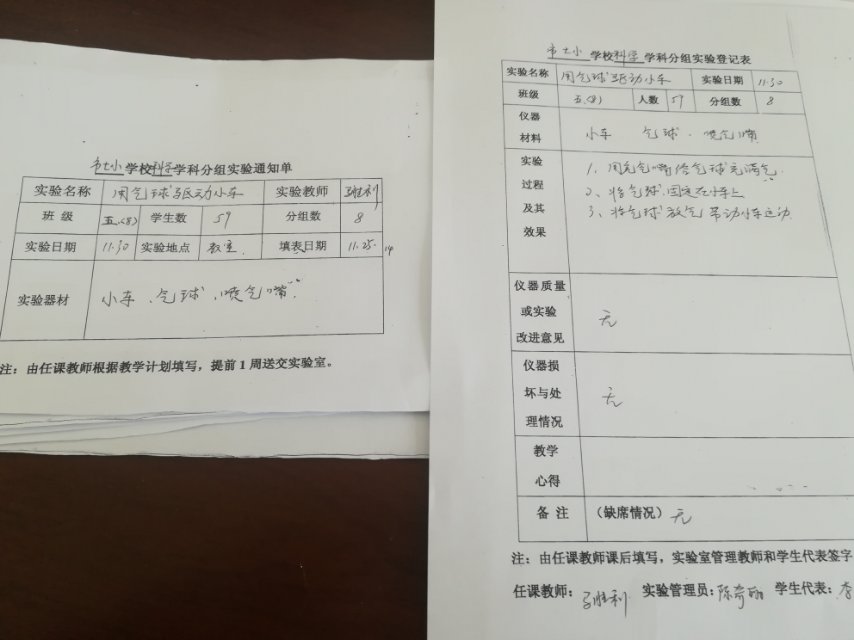 市七小 学校科学学科分组实验通知单
实验名称 用气球驱动小车 实验教师 胜利
班 级 五.(8) 学生数 59 分组数 8
实验日期 11.30 实验地点 教室 填表日期 11.25
实验器材 小车、气球、喷气嘴
注：由任课教师根据教学计划填写，提前1周送交实验室。
市七小 学校科学 学科分组实验登记表
实验名称 用气球驱动小车 实验日期 11.30
班级 五(8) 人数 59 分组数 8
仪器材料 小车 气球 、喷气嘴
实验过程及其效果 1、用充气嘴给气球充满气
2、将气球固定在小车上
3、将气球放气带动小车运动
仪器质量或实验改进意见 无
仪器损坏与处理情况 无
教学心得
备 注 （缺席情况）无
注：由任课教师课后填写，实验室管理教师和学生代表签字
任课教师： 胜利 实验管理员：陈奇 学生代表：李